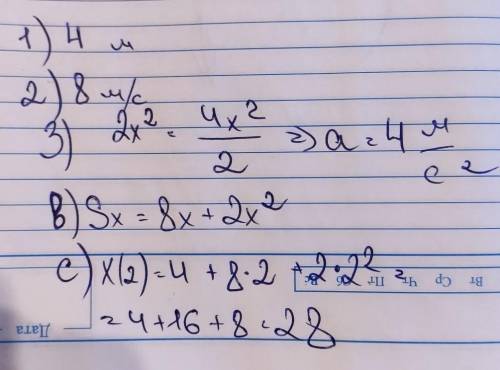 1) 4 м
2) 8 м/с
3) 2x² = 4x²/2 => a = 4 м/с²
в) Sx = 8x + 2x²
с) x(2) = 4 + 8·2 + 2·2² =
= 4 + 16 + 8 = 28
Вт Ср Чт Пт Сб Вс
Дата